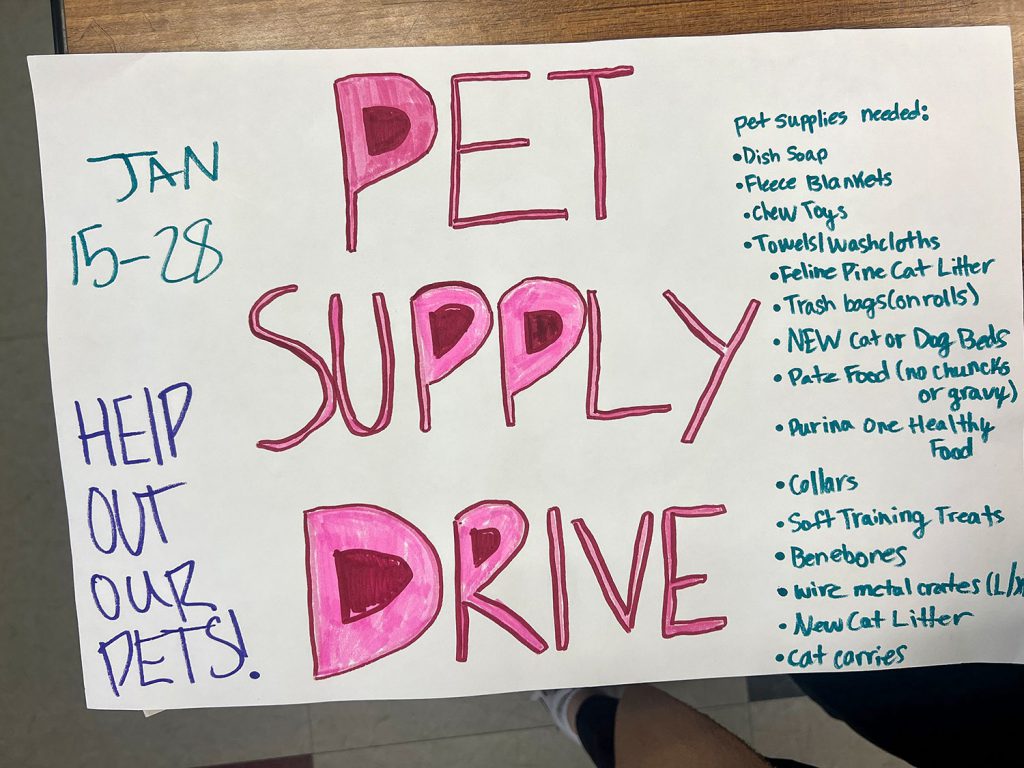 JAN
15-28
HELP
OUT
OUR
PETS!
PET
SUPPLY
DRIVE
pet supplies needed:
•Dish Soap
•Fleece Blankets
•Chew Toys
•Towels/Washcloths
•Feline Pine Cat Litter
•Trash bags(on rolls)
•NEW Cat or Dog Beds
•Pate Food (no chuncks
or gravy)
•Purina One Healthy
Food
•Collars
•Soft Training Treats
•Benebones
•wire metal crates (L/
•New Cat Litter
•Cat carries